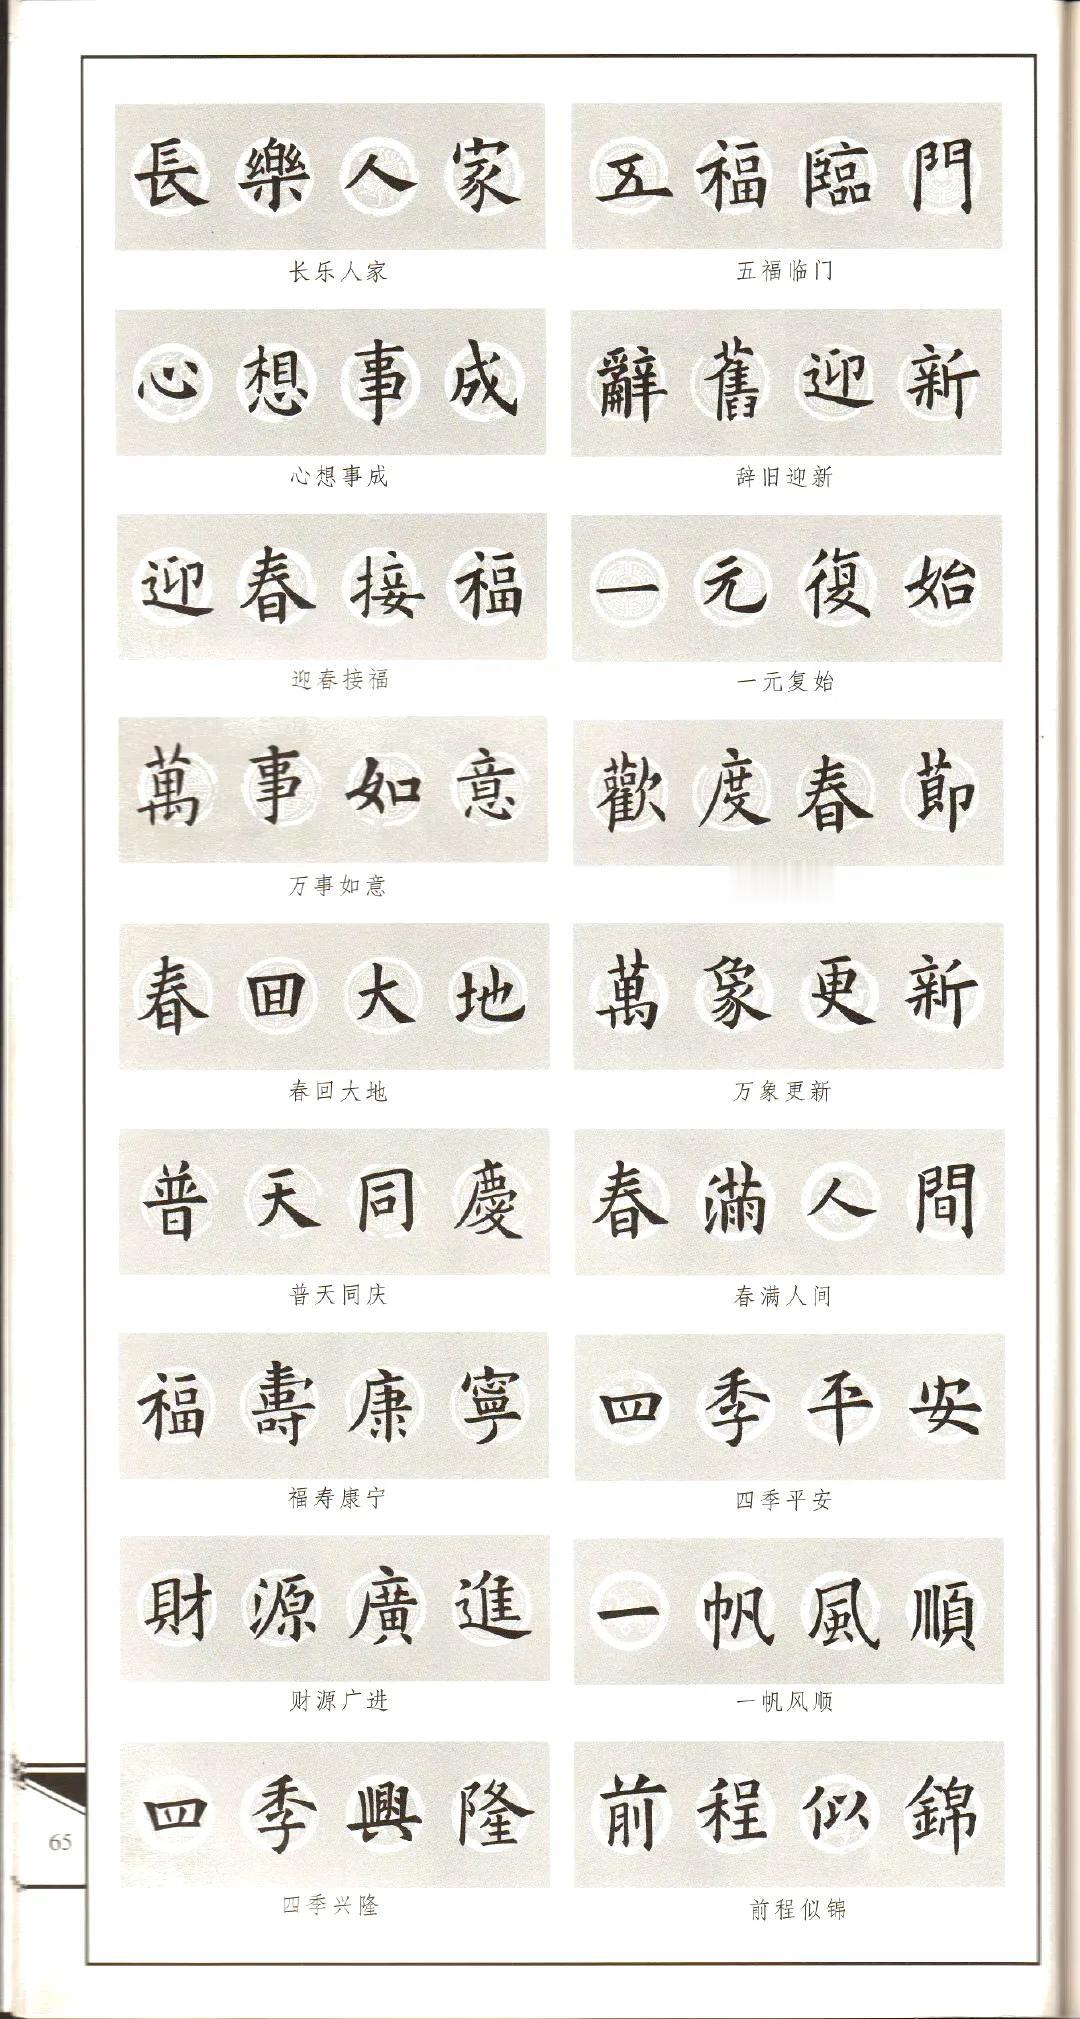 長樂人家
长乐人家
五福臨門
五福临门
心想事成
心想事成
辭舊迎新
辞旧迎新
迎春接福
迎春接福
一元復始
一元复始
萬事如意
万事如意
歡度春節
春回大地
春回大地
萬象更新
万象更新
普天同慶
普天同庆
春滿人間
春满人间
福壽康寧
福寿康宁
四季平安
四季平安
財源廣進
财源广进
一帆風順
一帆风顺
四季興隆
四季兴隆
前程似錦
前程似锦
65